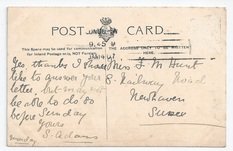 POST CARD
9.45 P
This Space may be used for communication
for Inland Postage only. NOT Foreign
THE ADDRESS ONLY TO BE WRITTEN
HERE.
Yes thanks I should
like to answer your
letter, but may not
be able to do so
before Sunday
Yours
S. Adams
Miss F. M. Hunt
8. Railway Road
Newhaven
Sussex